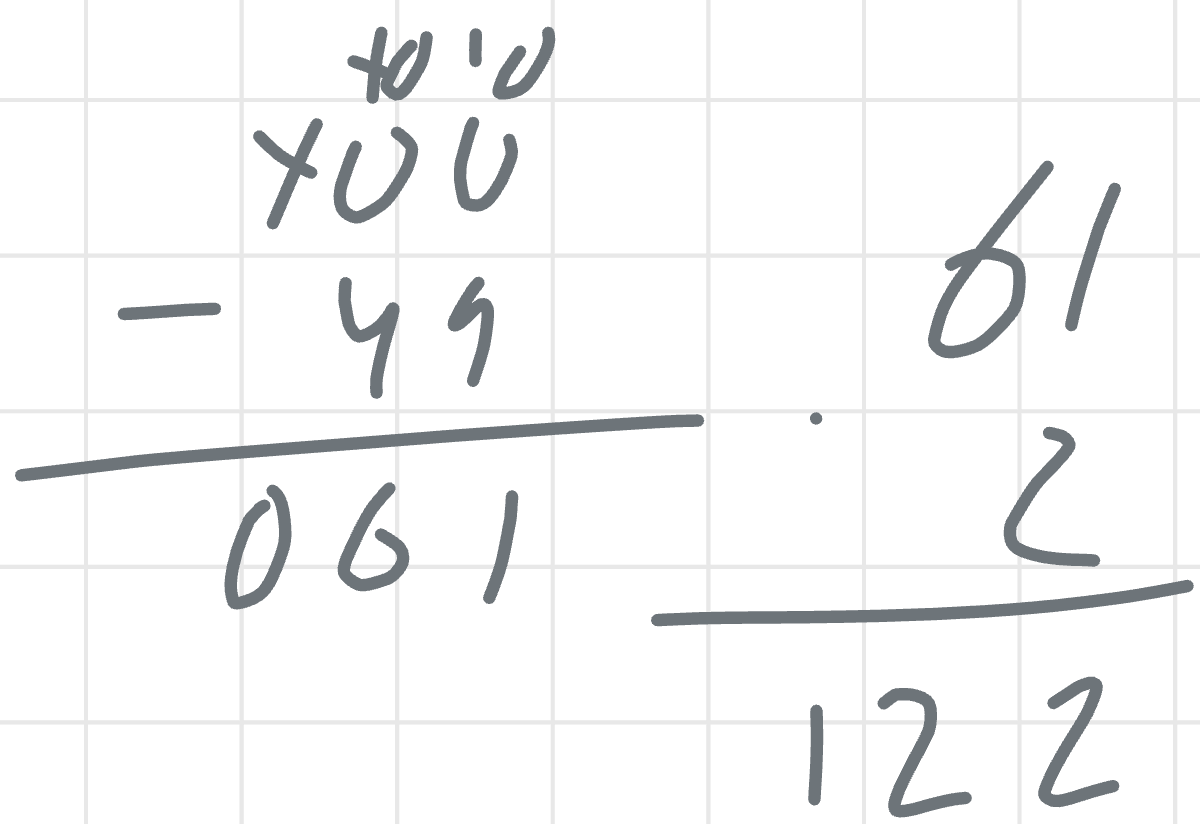 10 10
100
- 49
061
61
· 2
122